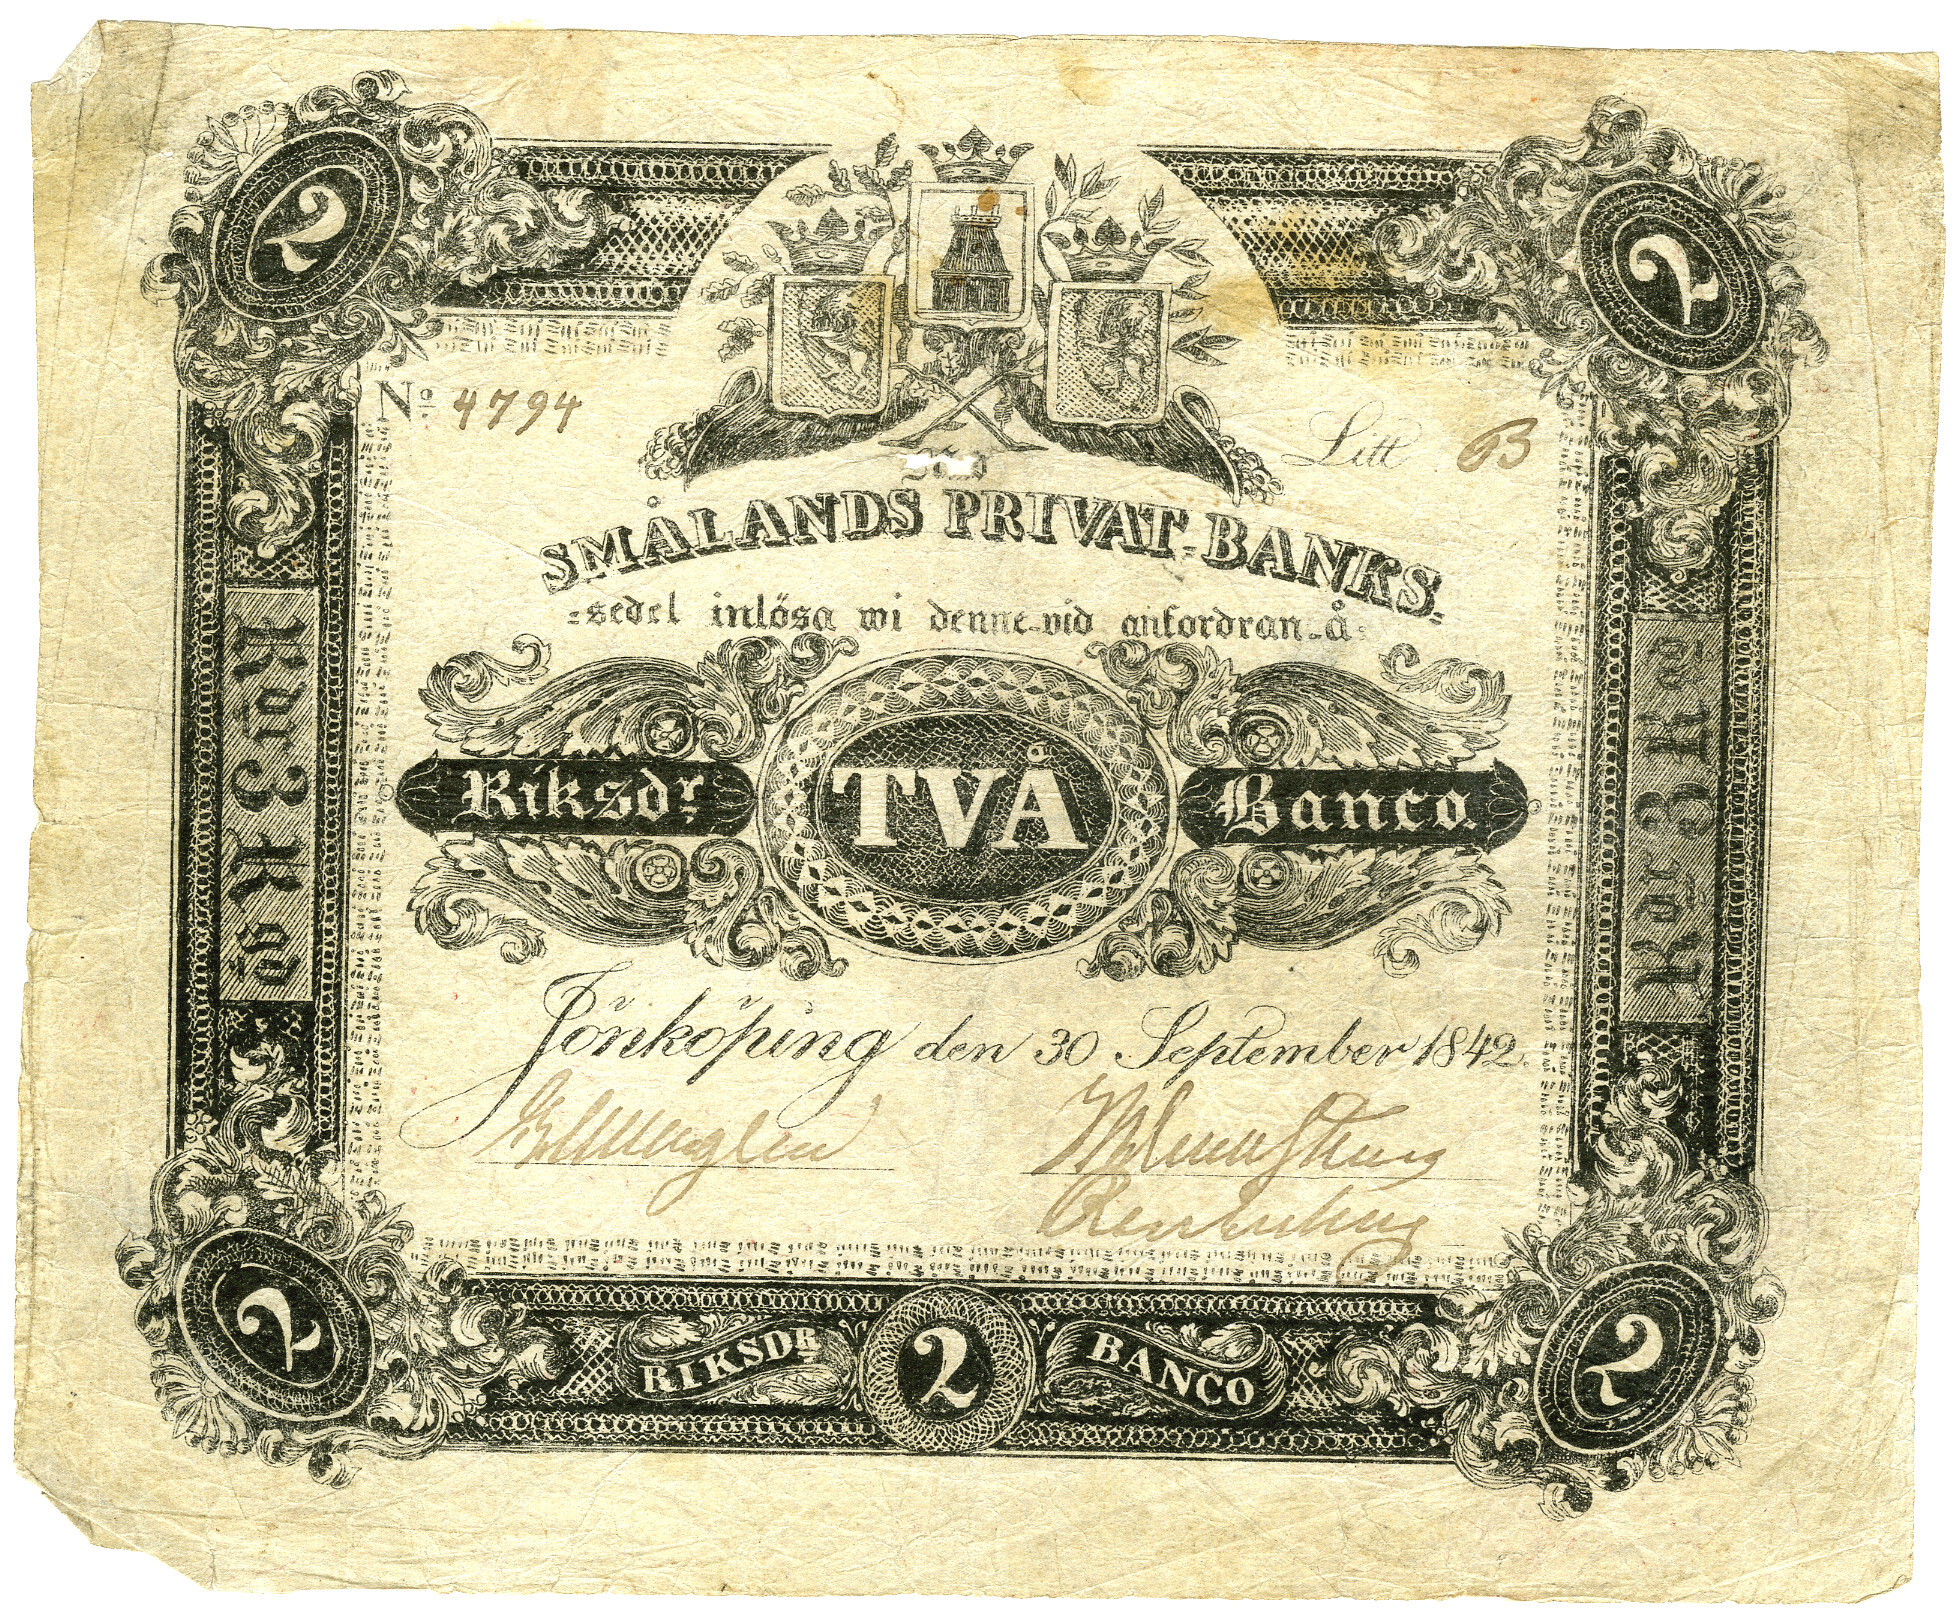 2
2
Nº 4794
Litt B
SMÅLANDS PRIVAT-BANKS
=sedel inlösa wi denne vid anfordran å
Riksdr
TVÅ
Banco.
Rdr 3 R gs
Rdr 3 R gs
Jönköping den 30 September 1842.
2
RIKSDR
2
BANCO
2